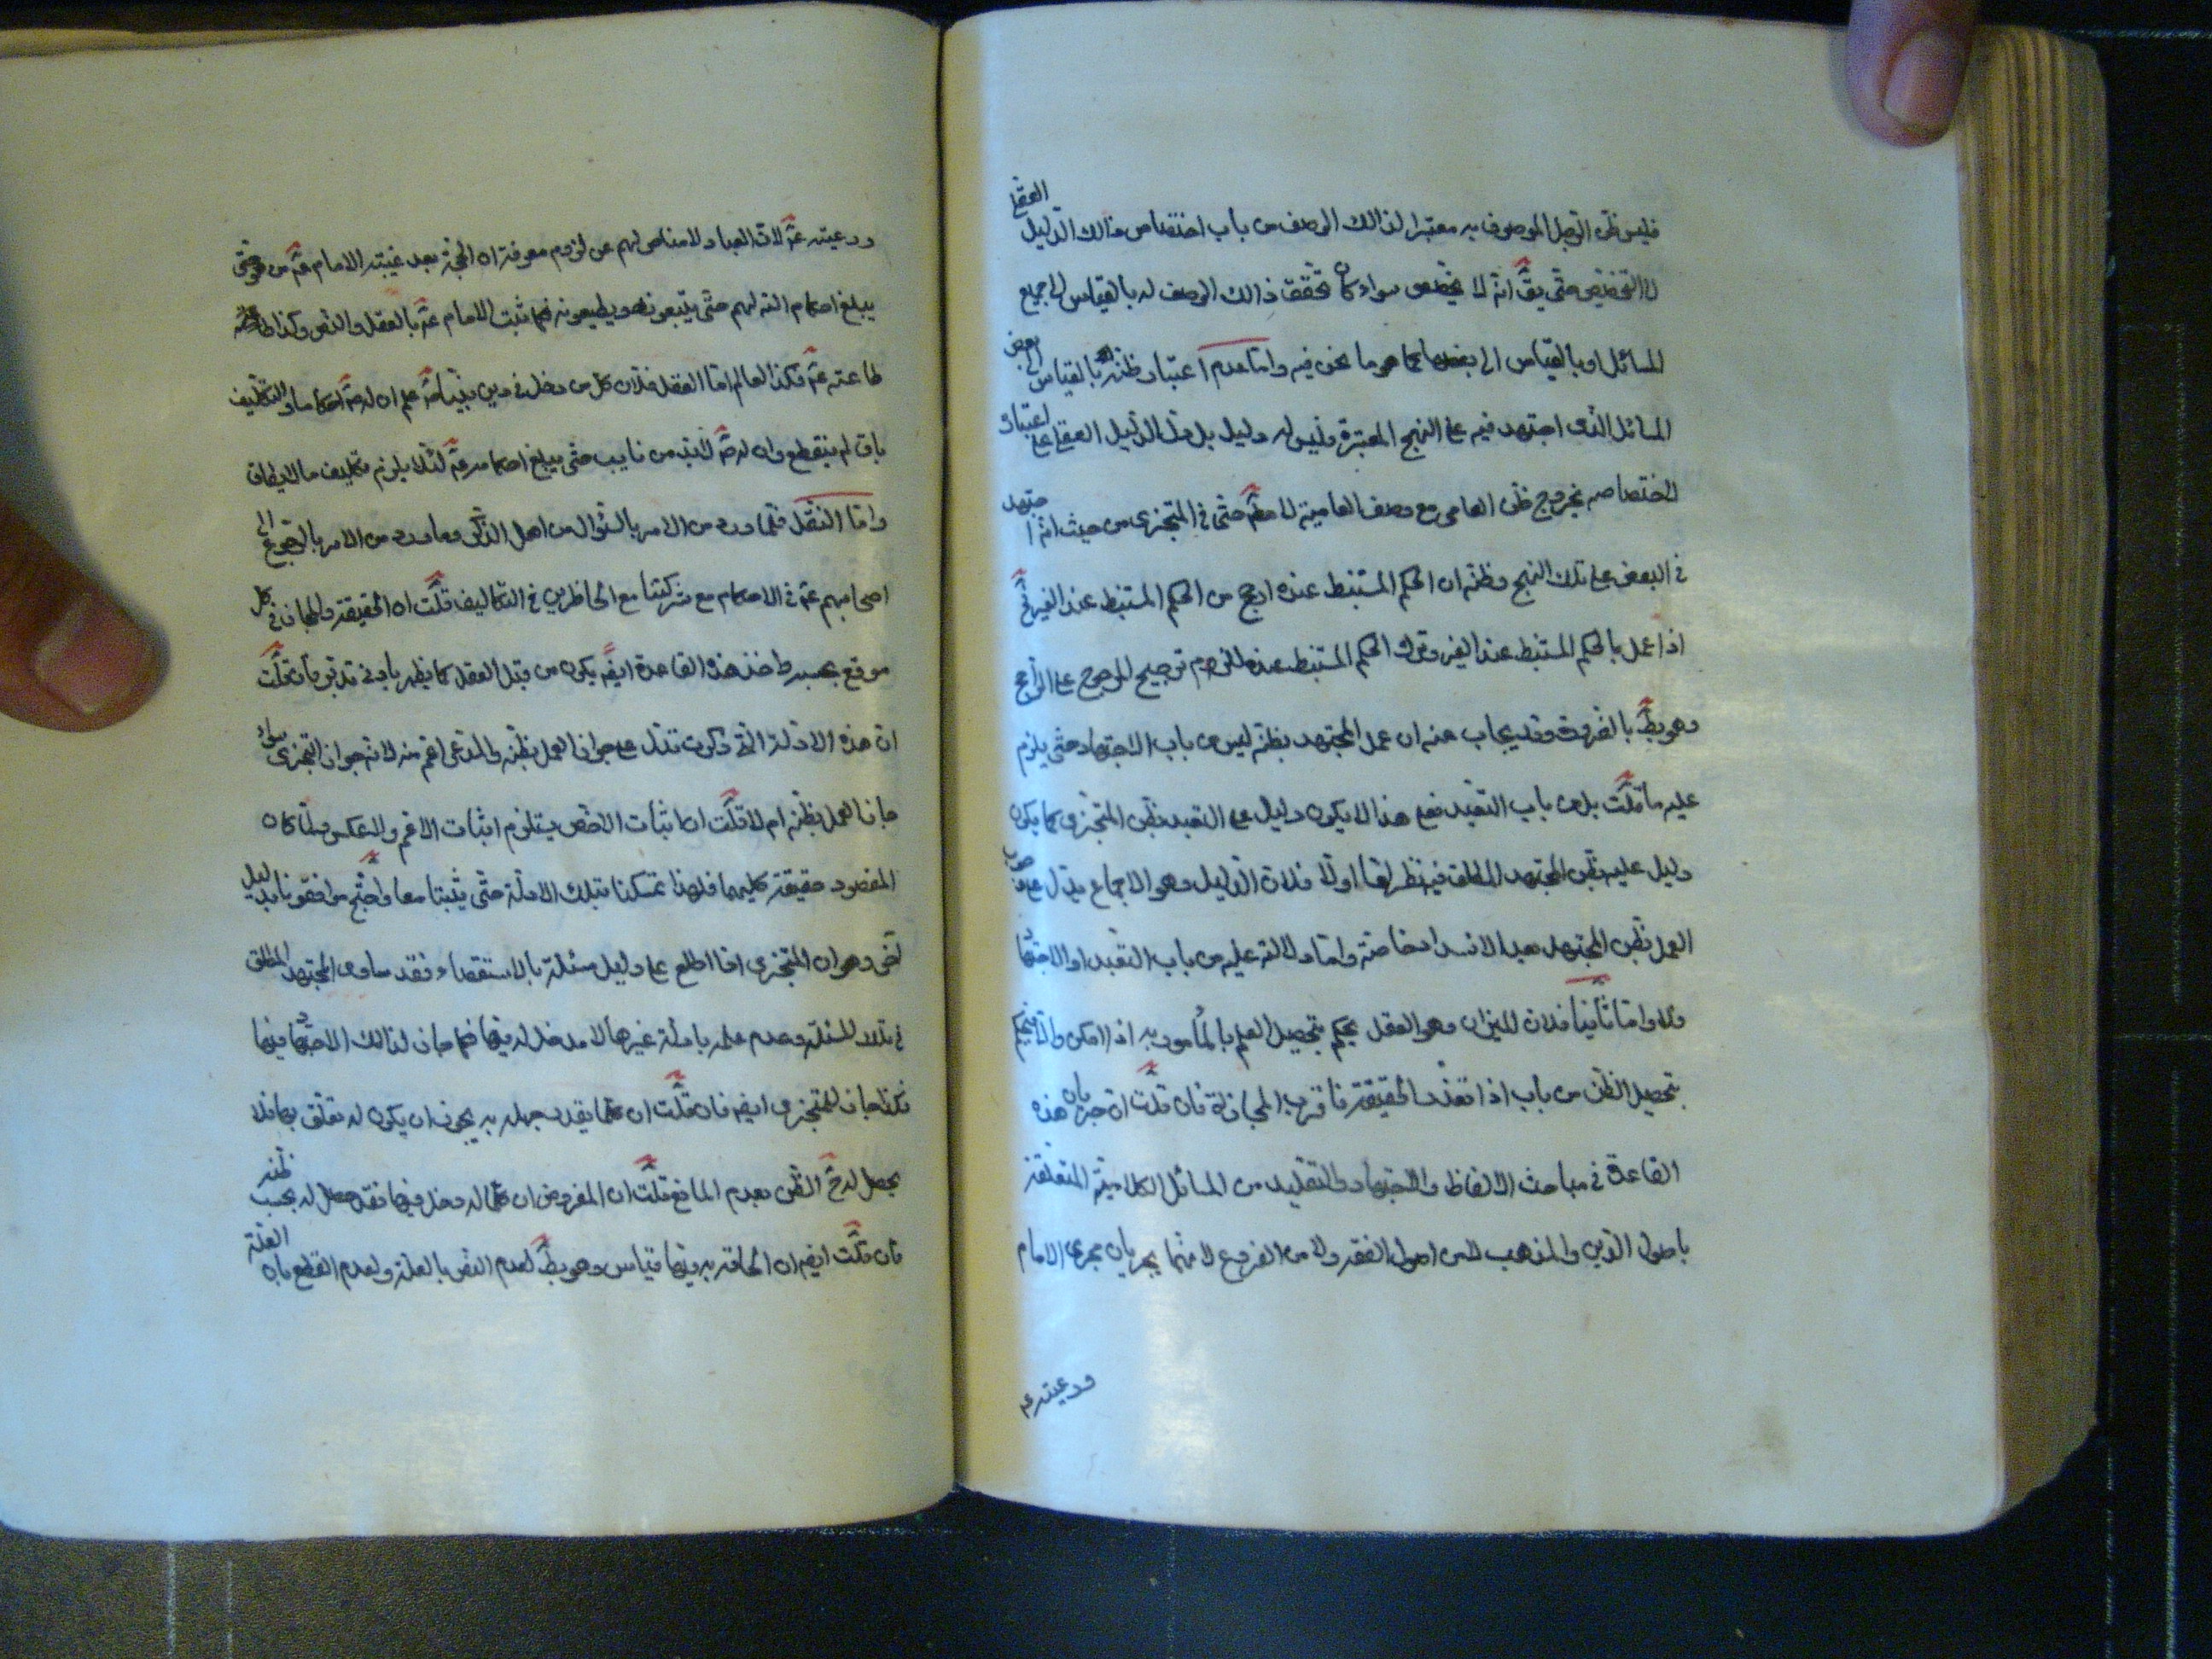 فليس ظن الرجل الموصوف به معتبرا لذالك الوصف من باب اختصاص ذالك الدليل العقلي
لا التخصيص حتى يقّ انه لا يخصص سواء كان تحقق ذالك الوصف له بالقياس الى جميع
المسائل او بالقياس الى بعضها كما هو ما نحن فيه واما عدم اعتبار ظنه بالقياس الى بعض
المسائل الذى اجتهد فيه على النهج المعتبرة فليس له دليل بل دل الدليل العقلى على اعتباره
لاختصاصه بخروج ظن العامى مع وصف العامية لا مطّ حتى فى المتجزى من حيث انه اجتهد
فى البعض على تلك النهج وظنه ان الحكم المستنبط عنده ارجح من الحكم المستنبط عند الغير فح
اذا عمل بالحكم المستنبط عند الغير وترك الحكم المستنبط عنده للزوم ترجيح المرجوح على الراجح
وهو بطّ بالضرورة وقد يجاب عنه ان عمل المجتهد بظنه ليس من باب الاجتهاد حتى يلزم
عليه ما قلت بل من باب التعبد فعلى هذا لا يكون دليل على التعبد بظن المتجزى كما يكون
دليل عليه بظن المجتهد المطلق فيه نظر اما اولا فلان الدليل وهو الاجماع يدل على وجوب
العمل بظن المجتهد بعد الانسداد خاصة واما دلالته عليه من باب التعبد او الاجتهاد
فلا واما ثانيا فلان الميزان وهو العقل يحكم بتحصيل العلم بالمأمور به اذا امكن والا فيحكم
بتحصيل الظن من باب اذا تعذر الحقيقة فاقرب المجازات فان قلت ان جريان هذه
القاعدة فى مباحث الالفاظ والاجتهاد والتقليد من المسائل الكلامية المتعلقة
باصول الدين والمذهب لا من اصول الفقه ولا من الفروع لانهما يجريان مجرى الامام
ورعيته عم
ورعيته عم لان العباد لا مناص لهم عن لزوم معرفة ان الحجة بعد غيبة الامام عم من هو حتى
يبلغ احكام الله لهم حتى يتبعونه ويطيعونه فكما ثبت الامام عم بالعقل والنص وكذا
طاعته عم فكذا العالم اما العقل فلان كل من دخل فى دين نبينا ص علم ان له احكاما والتكليف
باق لم ينقطع وان له ص لابد من نايب حتى يبلغ احكامه عم لئلا يلزم تكليف ما لا يطاق
واما النقل فلما ورد من الامر بالسؤال من اهل الذكر وما ورد من الامر بالرجوع الى
اصحابهم عم فى الاحكام مع شركتنا مع الحاظرين فى التكاليف قلت ان الحقيقة والمجاز فى كل
موقع بحسبه فاخذ هذه القاعدة ايضا يكون من قبل العقل كما يظهر بادنى تدبر فان قلت
ان هذه الادلة التى ذكرت تدل على جواز العمل بظنه والمدعى اعم منه لانه جواز التجزى سواء
جاز العمل بظنه ام لا قلت ان اثبات الاخص يستلزم اثبات الاعم ولا عكس ولما كان
المقصود حقيقة كليهما فلهذا تمسكنا بتلك الادلة حتى يثبتا معا واحتج موافقونا بدليل
آخر وهو ان المتجزى اذا اطلع على دليل مسئلة بالاستقصاء فقد ساوى المجتهد المطلق
فى تلك المسئلة وعدم علمه بادلة غيرها لا مدخل له فيها فكما جاز لذالك الاجتهاد فيها
فكذا جاز للمتجزى ايضا فان قلت ان كلما يقدر جهله به يجوز ان يكون له تعلق بها فلا
يحصل له ح الظن بعدم المانع قلت ان المفروض ان كلما له دخل فيها فقد حصل له بحسب ظنه
فان قلت ايضا ان الحاقه به فيها قياس وهو بطّ لعدم النص بالعلة ولعدم القطع بان العلة